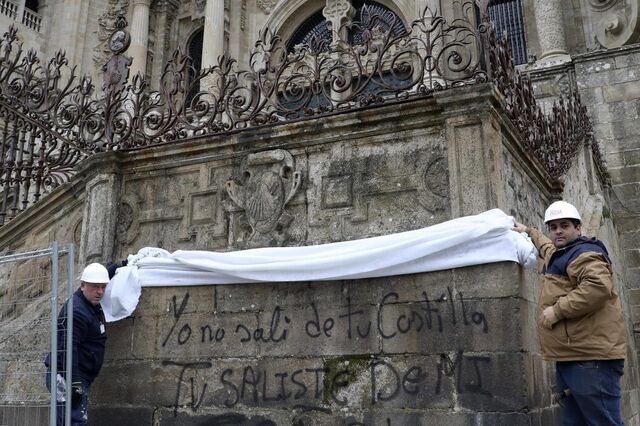 Yo no sali de tu Costilla
Tu SALiSTE De MI